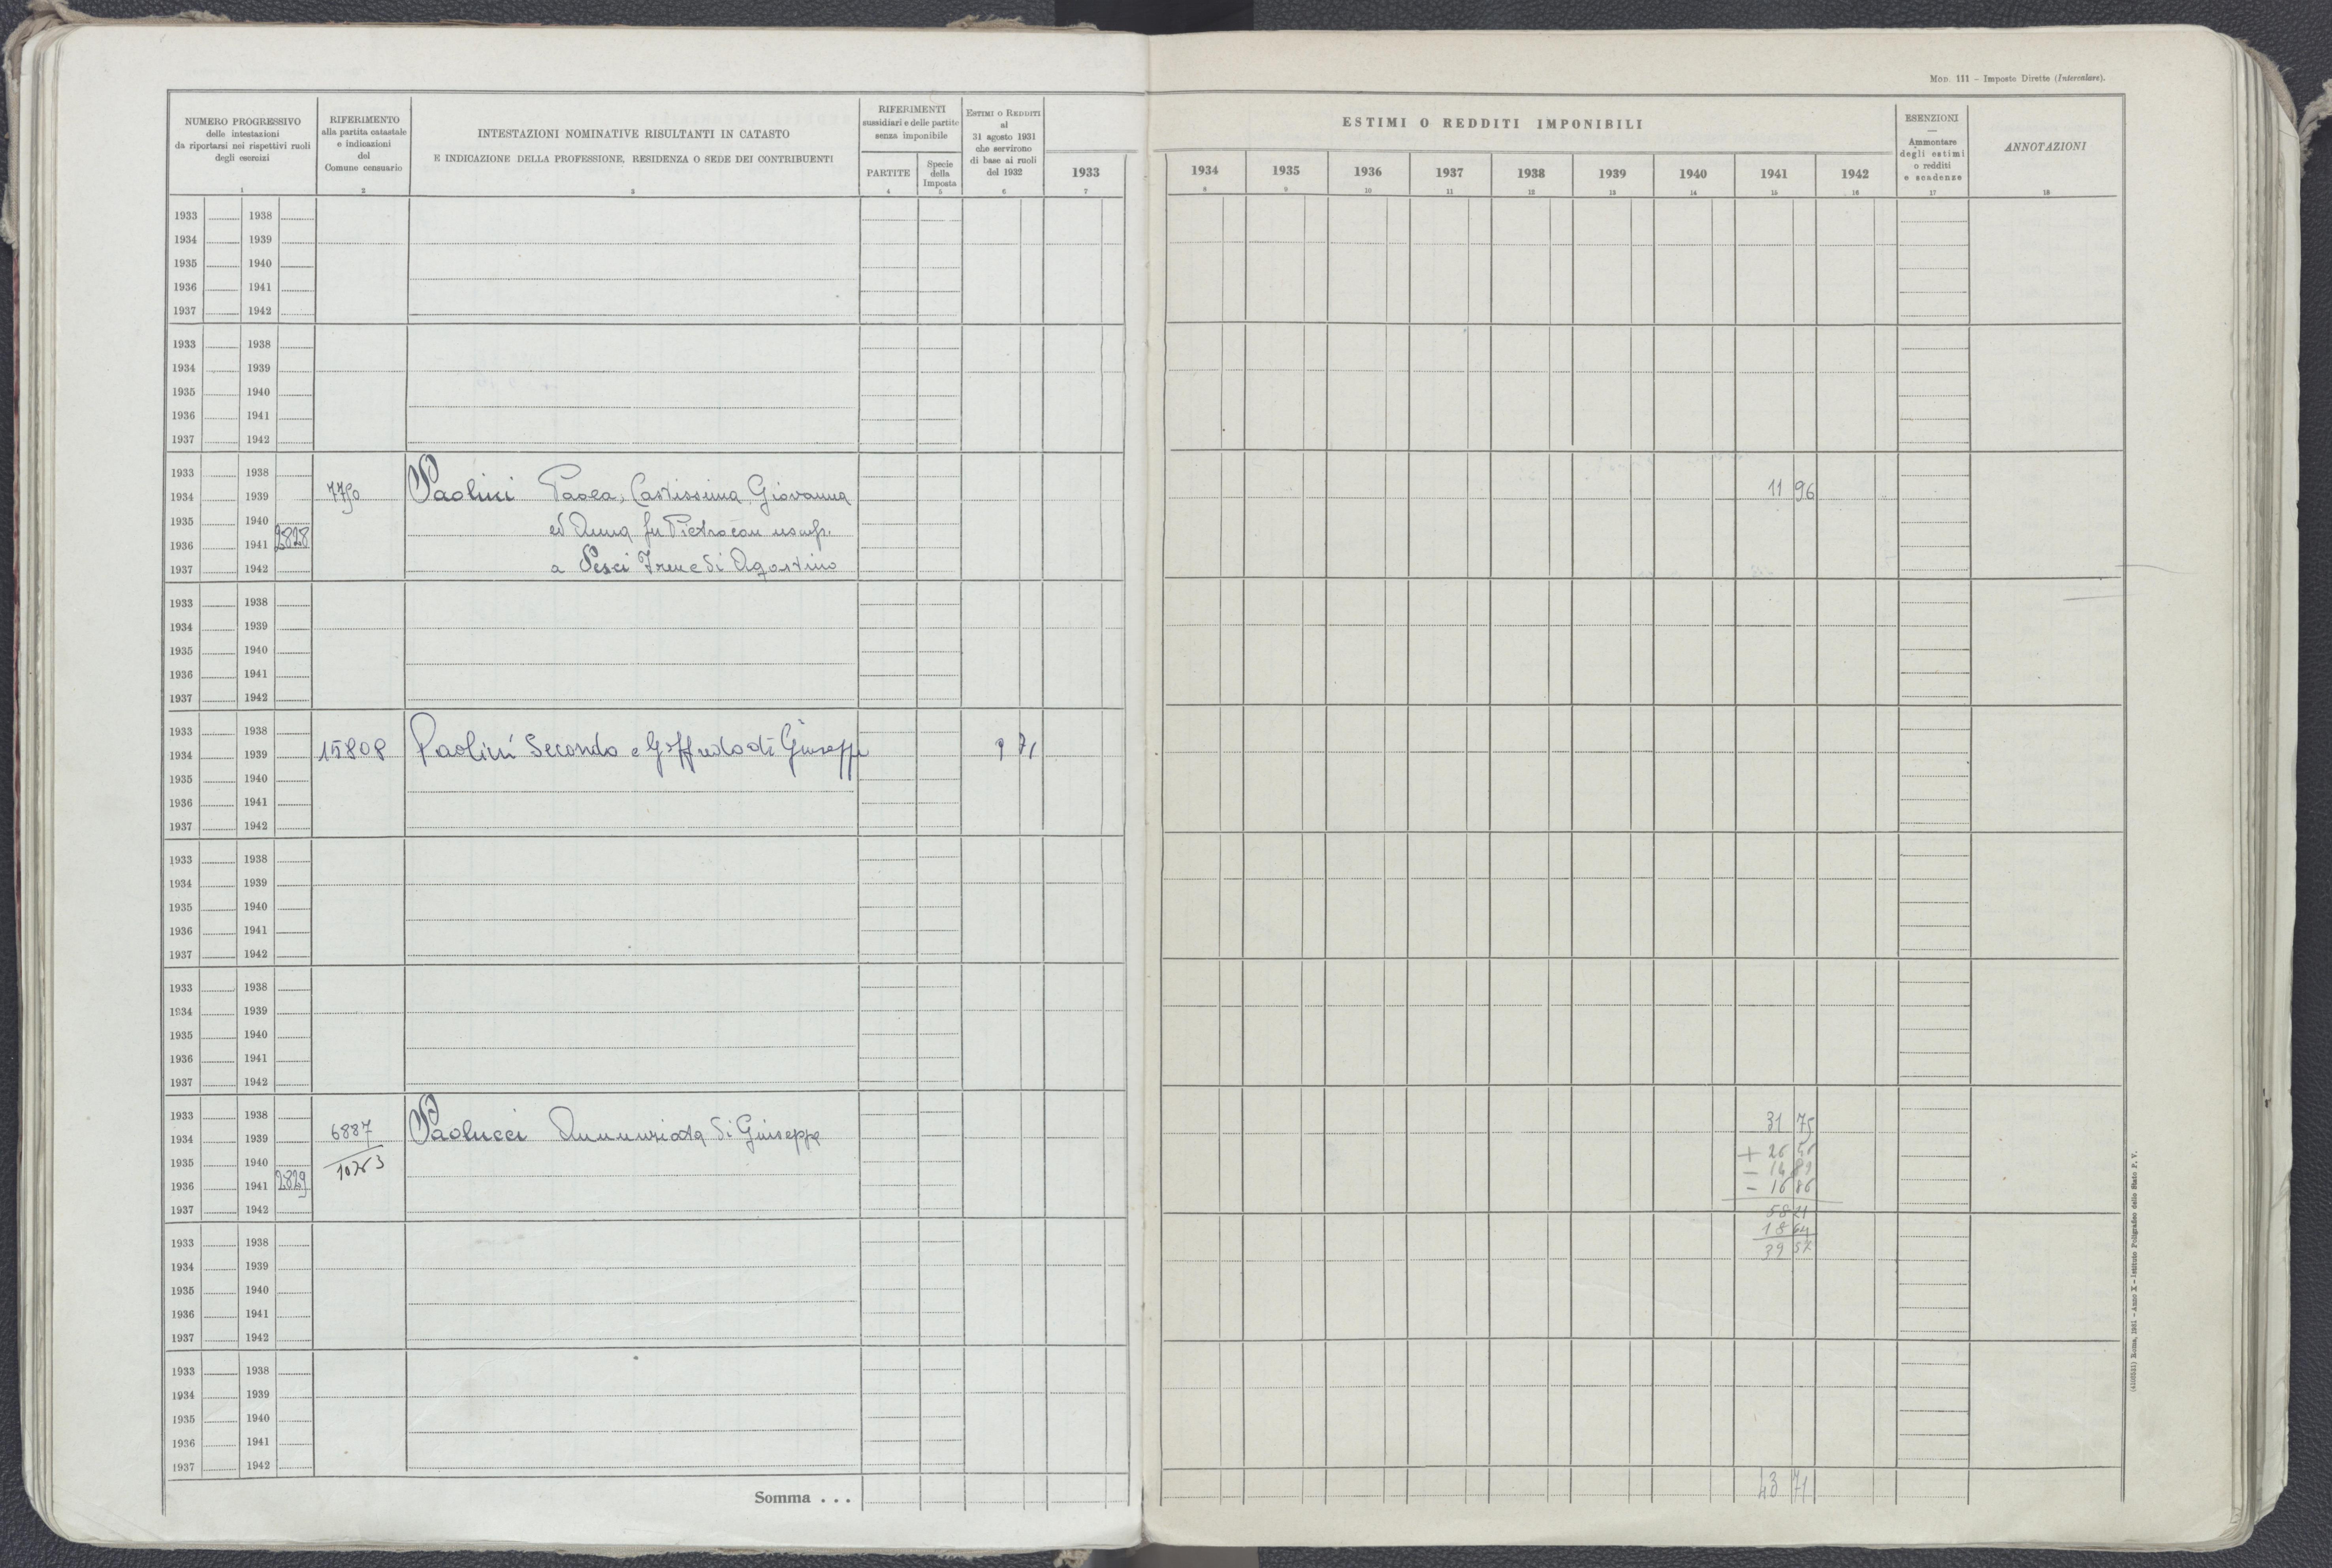 Mon. 111 - Imposte Dirette (Intercalare).
NUMERO PROGRESSIVO
delle intestazioni
da riportarsi nei rispettivi ruoli
degli esercizi
1
RIFERIMENTO
alla partita catastale
e indicazioni
del
Comune censuario
2
INTESTAZIONI NOMINATIVE RISULTANTI IN CATASTO
E INDICAZIONE DELLA PROFESSIONE, RESIDENZA O SEDE DEI CONTRIBUENTI
3
RIFERIMENTI
sussidiari e delle partite
senza imponibile
PARTITE
4
Specie
della
Imposta
5
ESTIMI O REDDITI
al
31 agosto 1931
che servirono
di base ai ruoli
del 1932
6
1933
7
ESTIMI O REDDITI IMPONIBILI
1934 1935 1936 1937 1938 1939 1940 1941 1942
8 9 10 11 12 13 14 15 16
ESENZIONI
—
Ammontare
degli estimi
o redditi
e scadenze
17
ANNOTAZIONI
18
1933 1938
1934 1939
1935 1940
1936 1941
1937 1942
1933 1938
1934 1939
1935 1940
1936 1941
1937 1942
1933 1938
1934 1939 7750 Paolini Paola, Castissima, Giovanna 11 96
1935 1940
ed Anna fu Pietro con usuf.
1936 1941 2828
1937 1942 a Pesci Irene di Agostino
1933 1938
1934 1939
1935 1940
1936 1941
1937 1942
1933 1938
1934 1939 15808 Paolini Secondo e Goffredo di Giuseppe 9 71
1935 1940
1936 1941
1937 1942
1933 1938
1934 1939
1935 1940
1936 1941
1937 1942
1933 1938
1934 1939
1935 1940
1936 1941
1937 1942
1933 1938 31 75
1934 1939 6887 Paolucci Annunziata di Giuseppe
1935 1940 + 26
- 14 89
1936 1941 2829 - 16 86
1937 1942
58 21
18 64
1933 1938
39 57
1934 1939
1935 1940
1936 1941
1937 1942
1933 1938
1934 1939
1935 1940
1936 1941
1937 1942
Somma . . . 43 71
Roma, 1931 - Anno X - Istituto Poligrafico dello Stato P. V.